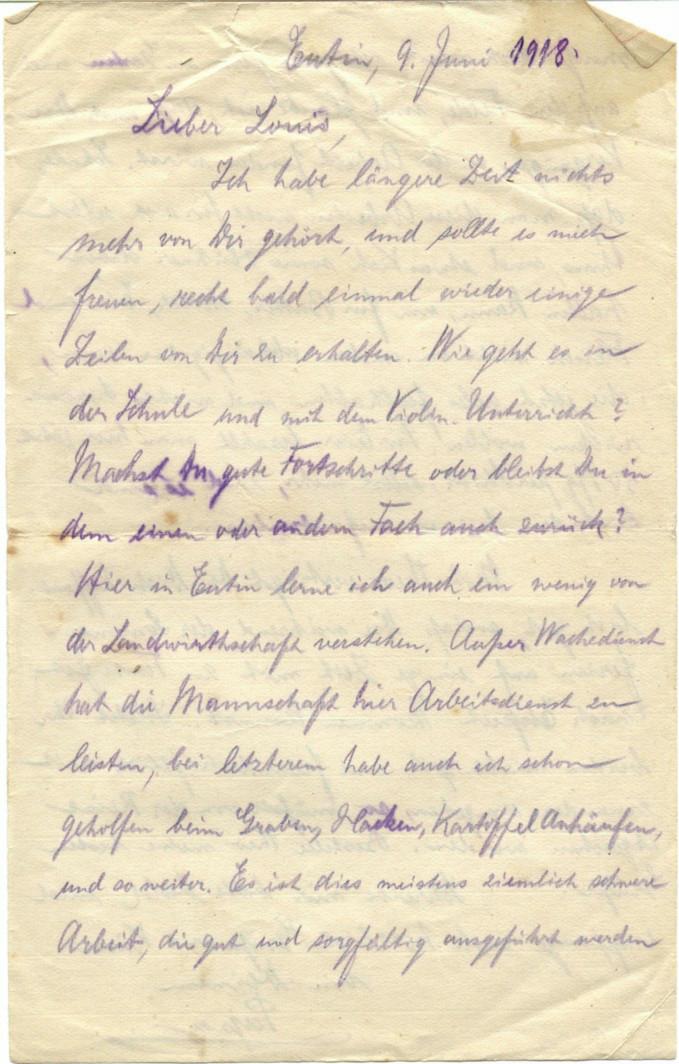 Eutin, 9. Juni 1918.
Lieber Louis,
Ich habe längere Zeit nichts
mehr von Dir gehört, und sollte es mich
freuen, recht bald einmal wieder einige
Zeilen von Dir zu erhalten. Wie geht es in
der Schule und mit dem Violin-Unterricht?
Machst Du gute Fortschritte oder bleibst Du in
dem einen oder andern Fach auch zurück?
Hier in Eutin lerne ich auch ein wenig von
der Landwirthschaft verstehen. Außer Wachedienst
hat die Mannschaft hier Arbeitsdienst zu
leisten, bei letzterem habe auch ich schon
geholfen beim Graben, Hacken, Kartoffel Anhäufen,
und so weiter. Es ist dies meistens ziemlich schwere
Arbeit, die gut und sorgfältig ausgeführt werden